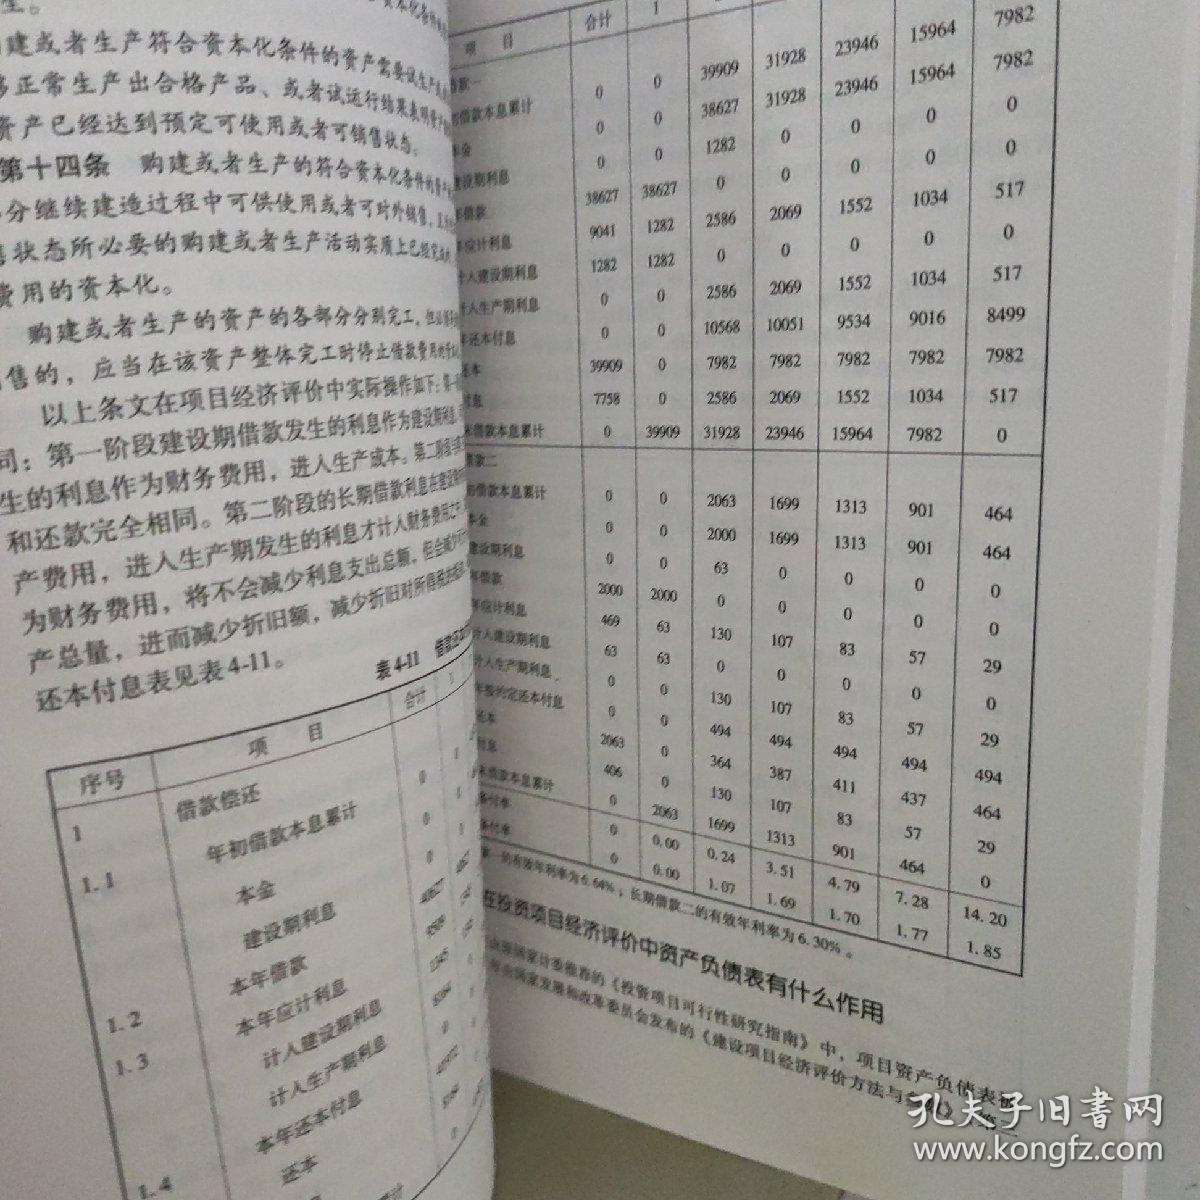 生。
建或者生产符合资本化条件的资产需要试生产或
正常生产出合格产品、或者试运行结果表明资产
资产已经达到预定可使用或者可销售状态。
第十四条 购建或者生产的符合资本化条件的
分继续建造过程中可供使用或者可对外销售，
状态所必要的购建或者生产活动实质上已经完
费用的资本化。
购建或者生产的资产的各部分分别完工，但
售的，应当在该资产整体完工时停止借款费用的
以上条文在项目经济评价中实际操作如下：第一
同；第一阶段建设期借款发生的利息作为建设期利息，
生的利息作为财务费用，进入生产成本。第二阶段
和还款完全相同。第二阶段的长期借款利息在建设
产费用，进入生产期发生的利息才计入财务费用
为财务费用，将不会减少利息支出总额，但会减少
产总量，进而减少折旧额，减少折旧对所得税
还本付息表见表4-11。
表4-11 借款还
序号 项 目 合计 1
1 借款偿还
1.1 年初借款本息累计 0
本金 0
建设期利息 0
本年借款
1.2 本年应计利息
1.3 计入建设期利息
计入生产期利息
本年还本付息
1.4 还本
项 目 合计 1
借款一
初借款本息累计 0 0 39909 31928 23946 15964 7982
本金 0 0 38627 31928 23946 15964 7982
建设期利息 0 0 1282 0 0 0 0
年借款 38627 38627 0 0 0 0 0
年应计利息 9041 1282 2586 2069 1552 1034 517
计入建设期利息 1282 1282 0 0 0 0 0
计入生产期利息 0 0 2586 2069 1552 1034 517
年还本付息 0 0 10568 10051 9534 9016 8499
还本 39909 0 7982 7982 7982 7982 7982
付息 7758 0 2586 2069 1552 1034 517
末借款本息累计 0 39909 31928 23946 15964 7982 0
借款二
初借款本息累计 0 0 2063 1699 1313 901 464
本金 0 0 2000 1699 1313 901 464
建设期利息 0 0 63 0 0 0 0
年借款 2000 2000 0 0 0 0 0
年应计利息 469 63 130 107 83 57 29
计入建设期利息 63 63 0 0 0 0 0
计入生产期利息 0 0 130 107 83 57 29
年按约定还本付息 0 0 494 494 494 494 494
还本 2063 0 364 387 411 437 464
付息 406 0 130 107 83 57 29
末借款本息累计 0 2063 1699 1313 901 464 0
备付率 0 0.00 0.24 3.51 4.79 7.28 14.20
备付率 0 0.00 1.07 1.69 1.70 1.77 1.85
一的有效年利率为6.64%；长期借款二的有效年利率为6.30%。
在投资项目经济评价中资产负债表有什么作用
国家计委推荐的《投资项目可行性研究指南》中，项目资产负债表被
国家发展和改革委员会发布的《建设项目经济评价方法与参数》
孔夫子旧书网
www.kongfz.com